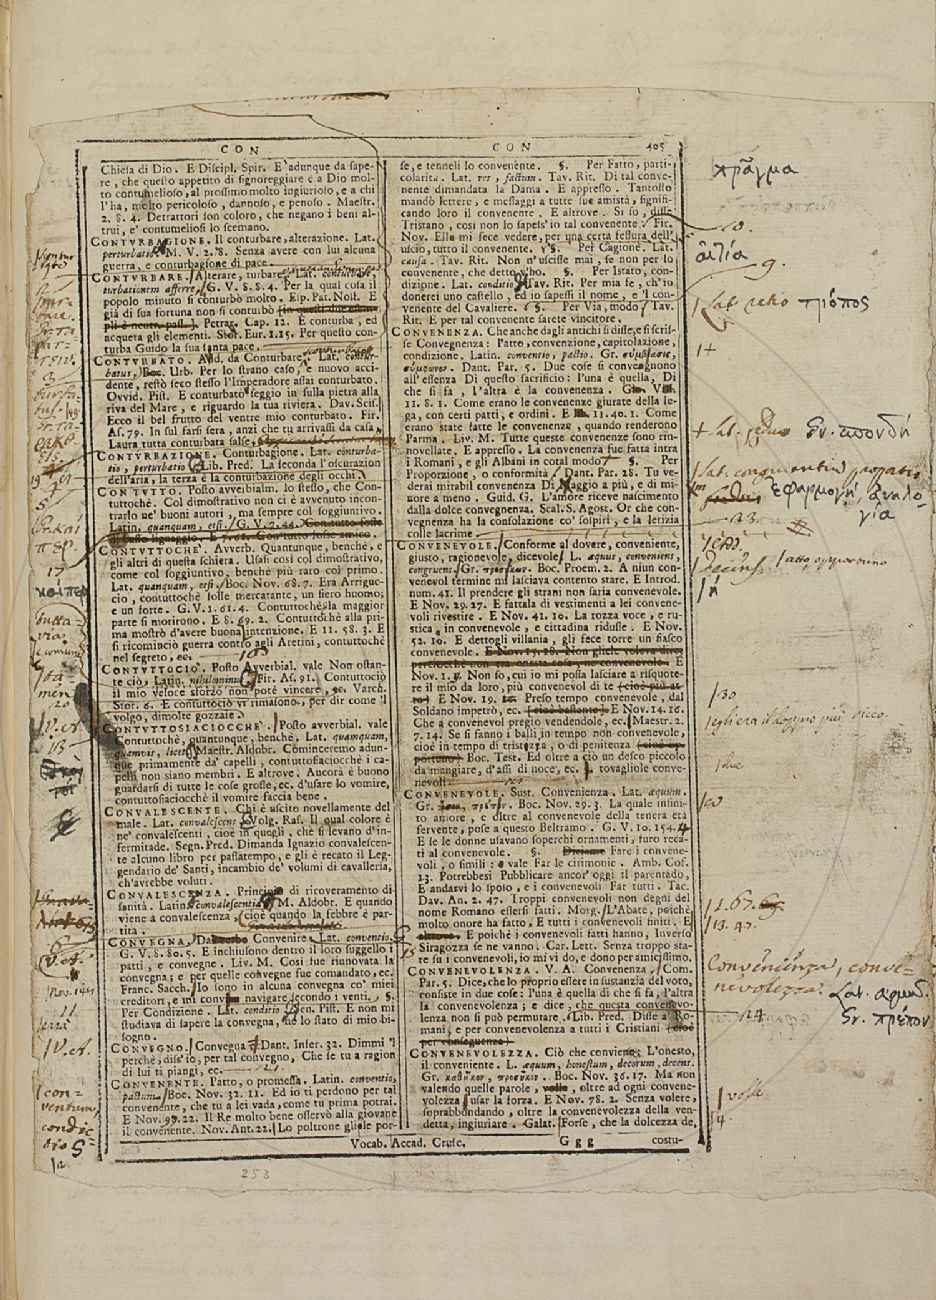 CON
Chiesa di Dio. E Discipl. Spir. E adunque da sape-
re, che questo appetito di signoreggiare è a Dio mol-
to contumelioso, al prossimo molto ingiurioso, e a chi
l'ha, molto pericoloso, dannoso, e penoso. Maestr.
2. 8. 4. Detrattori son coloro, che negano i beni al-
trui, e contumeliosi lo scemano.
CONTURBAGIONE. Il conturbare, alterazione. Lat.
perturbatio. M. V. 2. 8. Senza avere con lui alcuna
guerra, e conturbagione di pace.
CONTURBARE. Alterare, turbare. Lat. conturbare,
turbationem afferre. G. V. 8. 8. 4. Per la qual cosa il
popolo minuto si conturbò molto. Esp. Pat. Nost. E
già di sua fortuna non si conturbò
Petrar. Cap. 12. E conturba, ed
acqueta gli elementi. Stor. Eur. 1. 15. Per questo con-
turba Guido la sua santa pace.
CONTURBATO. Add. da Conturbare. Lat. contur-
batus. Boc. Urb. Per lo strano caso, e nuovo acci-
dente, restò seco stesso l'Imperadore assai conturbato.
Ovvid. Pist. E conturbato seggio in sulla pietra alla
riva del Mare, e riguardo la tua riviera. Dav. Scis.
Ecco il bel frutto del ventre mio conturbato. Fir.
As. 79. In sul farsi sera, anzi che tu arrivassi da casa,
Laura tutta conturbata salse,
CONTURBAZIONE. Conturbagione. Lat. conturba-
tio, perturbatio. Lib. Pred. La seconda l'oscurazion
dell'aria, la terza è la conturbazione degli occhi.
CONTUTTO. Posto avverbialm. lo stesso, che Con-
tuttochè. Col dimostrativo non ci è avvenuto incon-
trarlo ne' buoni autori, ma sempre col soggiuntivo.
Latin. quanquam, etsi. G. V. 7. 44. Contutto fosse
di basso lignaggio. E 7. 61. Con tutto fosse amico.
CONTUTTOCHÈ. Avverb. Quantunque, benchè, e
gli altri di questa schiera. Usasi così col dimostrativo,
come col soggiuntivo, benchè più raro col primo.
Lat. quanquam, etsi. Boc. Nov. 68. 7. Era Arriguc-
cio, contuttochè fosse mercatante, un fiero huomo;
e un forte. G. V. 1. 61. 4. Contuttochè la maggior
parte si morirono. E 8. 69. 2. Contuttochè alla pri-
ma mostrò d'avere buona intenzione. E 11. 58. 3. E
si ricominciò guerra contro agli Aretini, contuttochè
nel segreto, ec.
CONTUTTOCIÒ. Posto Avverbial. vale Non ostan-
te ciò. Latin. nihilominus. Fir. As. 91. Contuttociò
il mio veloce sforzo non potè vincere, ec. Varch.
Stor. 6. E contuttociò vi rimasono, per dir come 'l
volgo, dimolte gozzaie.
CONTUTTOSIACIOCCHÈ. Posto avverbial. vale
Contuttochè, quantunque, benchè, Lat. quamquam,
quamvis, licet. Maestr. Aldobr. Cominceremo adun-
que primamente da' capelli, contuttosiaciocchè i ca-
pelli non siano membri. E altrove. Ancora è buono
guardarsi di tutte le cose grosse, ec. d'usare lo vomire,
contuttosiaciocchè il vomire faccia bene.
CONVALESCENTE. Chi è uscito novellamente del
male. Lat. convalescens. Volg. Ras. Il qual colore è
ne' convalescenti, cioè in quegli, che si levano d'in-
fermitade. Segn. Pred. Dimanda Ignazio convalescen-
te alcuno libro per passatempo, e gli è recato il Leg-
gendario de' Santi, incambio de' volumi di cavalleria,
ch'avrebbe voluti.
CONVALESCENZA. Principio di ricoveramento di
sanità. Latin. convalescentia. M. Aldobr. E quando
viene a convalescenza, (cioè quando la febbre è par-
tita.
CONVEGNA. Da Convenire. Lat. conventio.
G. V. 8. 80. 5. E inchiusono dentro il loro suggello i
patti, e convegne. Liv. M. Così fue rinnovata la
convegna; e per quelle convegne fue comandato, ec.
Franc. Sacch. Io sono in alcuna convegna co' miei
creditori, e mi convien navigare secondo i venti. §.
Per Condizione. Lat. conditio. Sen. Pist. E non mi
studiava di sapere la convegna, nè lo stato di mio bi-
sogno.
CONVEGNO. Convegna. Dant. Infer. 32. Dimmi 'l
perchè, diss'io, per tal convegno, Che se tu a ragion
di lui ti piangi, ec.
CONVENENTE. Patto, o promessa. Latin. conventio,
pactum. Boc. Nov. 32. 11. Ed io ti perdono per tal
convenente, che tu a lei vada, come tu prima potrai.
E Nov. 99. 22. Il Re molto bene osservò alla giovane
il convenente. Nov. Ant. 22. Lo poltrone gliele por-
Vocab. Accad. Crusc.
253
CON
405
se, e tennelí lo convenente. §. Per Fatto, parti-
colarità. Lat. res, factum. Tav. Rit. Di tal conve-
nente dimandata la Dama. E appresso. Tantosto
mandò lettere, e messaggi a tutte sue amistà, signifi-
cando loro il convenente. E altrove. Sì so, disse
Tristano, così non lo sapess'io tal convenente. Fir.
Nov. Ella mi fece vedere, per una certa fessura dell'
uscio, tutto il convenente. §. Per Cagione. Lat.
causa. Tav. Rit. Non n'uscisse mai, se non per lo
convenente, che detto v'ho. §. Per Istato, con-
dizione. Lat. conditio. Tav. Rit. Per mia fe, ch'io
donerei uno castello, ed io sapessi il nome, e 'l con-
venente del Cavaliere. §. Per Via, modo. Tav.
Rit. E per tal convenente sarete vincitore.
CONVENENZA. Che anche dagli antichi si disse, e si scris-
se Convegnenza: Patto, convenzione, capitolazione,
condizione. Latin. conventio, pactio. Gr. σύμβασις,
σύμφωνον. Dant. Par. 5. Due cose si convegnono
all'essenza Di questo sacrificio: l'una è quella, Di
che si fa, l'altra è la convenenza. Gio. Vill.
11. 8. 1. Come erano le convenenze giurate della le-
ga, con certi patti, e ordini. E 11. 40. 1. Come
erano state fatte le convenenze, quando renderono
Parma. Liv. M. Tutte queste convenenze sono rin-
novellate. E appresso. La convenenza fue fatta intra
i Romani, e gli Albani in cotal modo. §. Per
Proporzione, o conformità. Dant. Par. 28. Tu ve-
derai mirabil convenenza Di maggio a più, e di mi-
nore a meno. Guid. G. L'amore riceve nascimento
dalla dolce convegnenza. Scal. S. Agost. Or che con-
vegnenza ha la consolazione co' sospiri, e la letizia
colle lacrime.
CONVENEVOLE. Conforme al dovere, conveniente,
giusto, ragionevole, dicevole. L. aequus, conveniens,
congruens. Gr. προσῆκον. Boc. Proem. 2. A niun con-
venevol termine mi lasciava contento stare. E Introd.
num. 41. Il prendere gli strani non saria convenevole.
E Nov. 29. 27. E fattala di vestimenti a lei convene-
voli rivestire. E Nov. 41. 10. La rozza voce, e ru-
stica, in convenevole, e cittadina ridusse. E Nov.
52. 10. E dettogli villania, gli fece torre un fiasco
convenevole. E Nov. 15. 18. Non gliele voleva dire,
perciocchè non era onesta cosa, nè convenevole. E
Nov. 1. Non so, cui io mi possa lasciare a risquote-
re il mio da loro, più convenevol di te (cioè più at-
to) E Nov. 19. Preso tempo convenevole, dal
Soldano impetrò, ec. (cioè bastante) E Nov. 14. 16.
Che a convenevol pregio vendendole, ec. Maestr. 2.
7. 14. Se si fanno i balli in tempo non convenevole,
cioè in tempo di tristezza, o di penitenza (cioè op-
portuno) Boc. Test. Ed oltre a ciò un desco piccolo
da mangiare, d'assi di noce, ec. tovagliole conve-
nevoli.
CONVENEVOLE. Sust. Convenienza. Lat. aequum.
Gr. πρέπον. Boc. Nov. 29. 3. La quale infini-
to amore, e oltre al convenevole della tenera età
fervente, pose a questo Beltramo. G. V. 10. 154. 4
E se le donne usavano soperchi ornamenti, furo reca-
ti al convenevole. §. Diciamo Fare i convene-
voli, o simili: e vale Far le cirimonie. Amb. Cof.
13. Potrebbesi Pubblicare ancor' oggi il parentado,
E andarvi lo sposo, e i convenevoli Far tutti. Tac.
Dav. An. 2. 47. Troppi convenevoli non degni del
nome Romano essersi fatti. Morg. L'Abate, poichè
molto onore ha fatto, E tutti i convenevoli finiti. E
altrove. E poichè i convenevoli fatti hanno, Inverso
Siragozza se ne vanno. Car. Lett. Senza troppo sta-
re su i convenevoli, io mi vi do, e dono per amicissimo.
CONVENEVOLENZA. V. A. Convenenza. Com.
Par. 5. Dice, che lo proprio essere in sustanzia del voto,
consiste in due cose: l'una è quella di che si fa, l'altra
la convenevolenza; e dice, che questa convenevo-
lenza non si può permutare. Lib. Pred. Disse a' Ro-
mani, e per convenevolenza a tutti i Cristiani (cioè
per conseguenza)
CONVENEVOLEZZA. Ciò che conviene; L'onesto,
il conveniente. L. aequum, honestum, decorum, decens.
Gr. καθῆκον, προσῆκον. Boc. Nov. 36. 17. Ma non
valendo quelle parole, volle, oltre ad ogni conve-
nevolezza, usar la forza. E Nov. 78. 2. Senza volere,
soprabbondando, oltre la convenevolezza della ven-
detta, ingiuriare. Galat. Forse, che la dolcezza de,
Ggg
costu-
πρᾶγμα
10.
αἰτία
9.
Lat. ratio τρόπος
1+
+ Lat. fedus Gr. σπονδή
Lat. congruentia, proportio
ἐφαρμογή, αναλο-
γία
23
Decens
30
egli era il doppio più ricco.
due
1.67.
13. 47.
Convenienza, conve-
nevolezza. Lat. aequit.
Gr. πρέπον
24
volle
4
3
5
17
καίπερ
tutta-
via
ta-
men
20
V. et.
13
6
V. et.
Nov. ant.
11
V. et.
con-
ventum,
condic-
tio
12